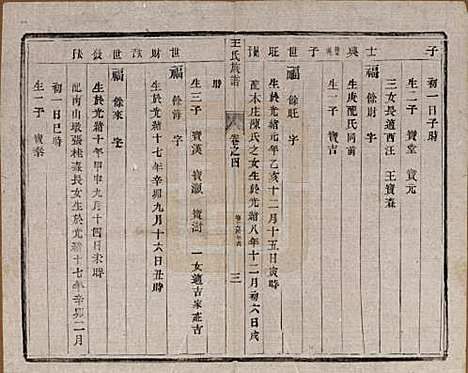 子
初一日子時
生一子 寶堂 寶元
三女長適西汪 王寶森
士
福 餘財 字
生庚配氏同前
興
子
世
福 餘旺 字
生於光緒元年乙亥十二月十五日寅時
配木庄陳氏之女生於光緒八年十二月初六日戌
王氏族譜
卷之四
三
時
生三子 寶漢 寶瀛 寶澍 一女適吉家莊吉
世
福 餘海 字
財
生於光緒十七年辛卯九月十六日丑時
世
福 餘來 字
發
生於光緒十年甲申九月十四日未時
配南山墩張桂森長女生於光緒十七年辛卯二月
初一日巳時
生一子 寶榮